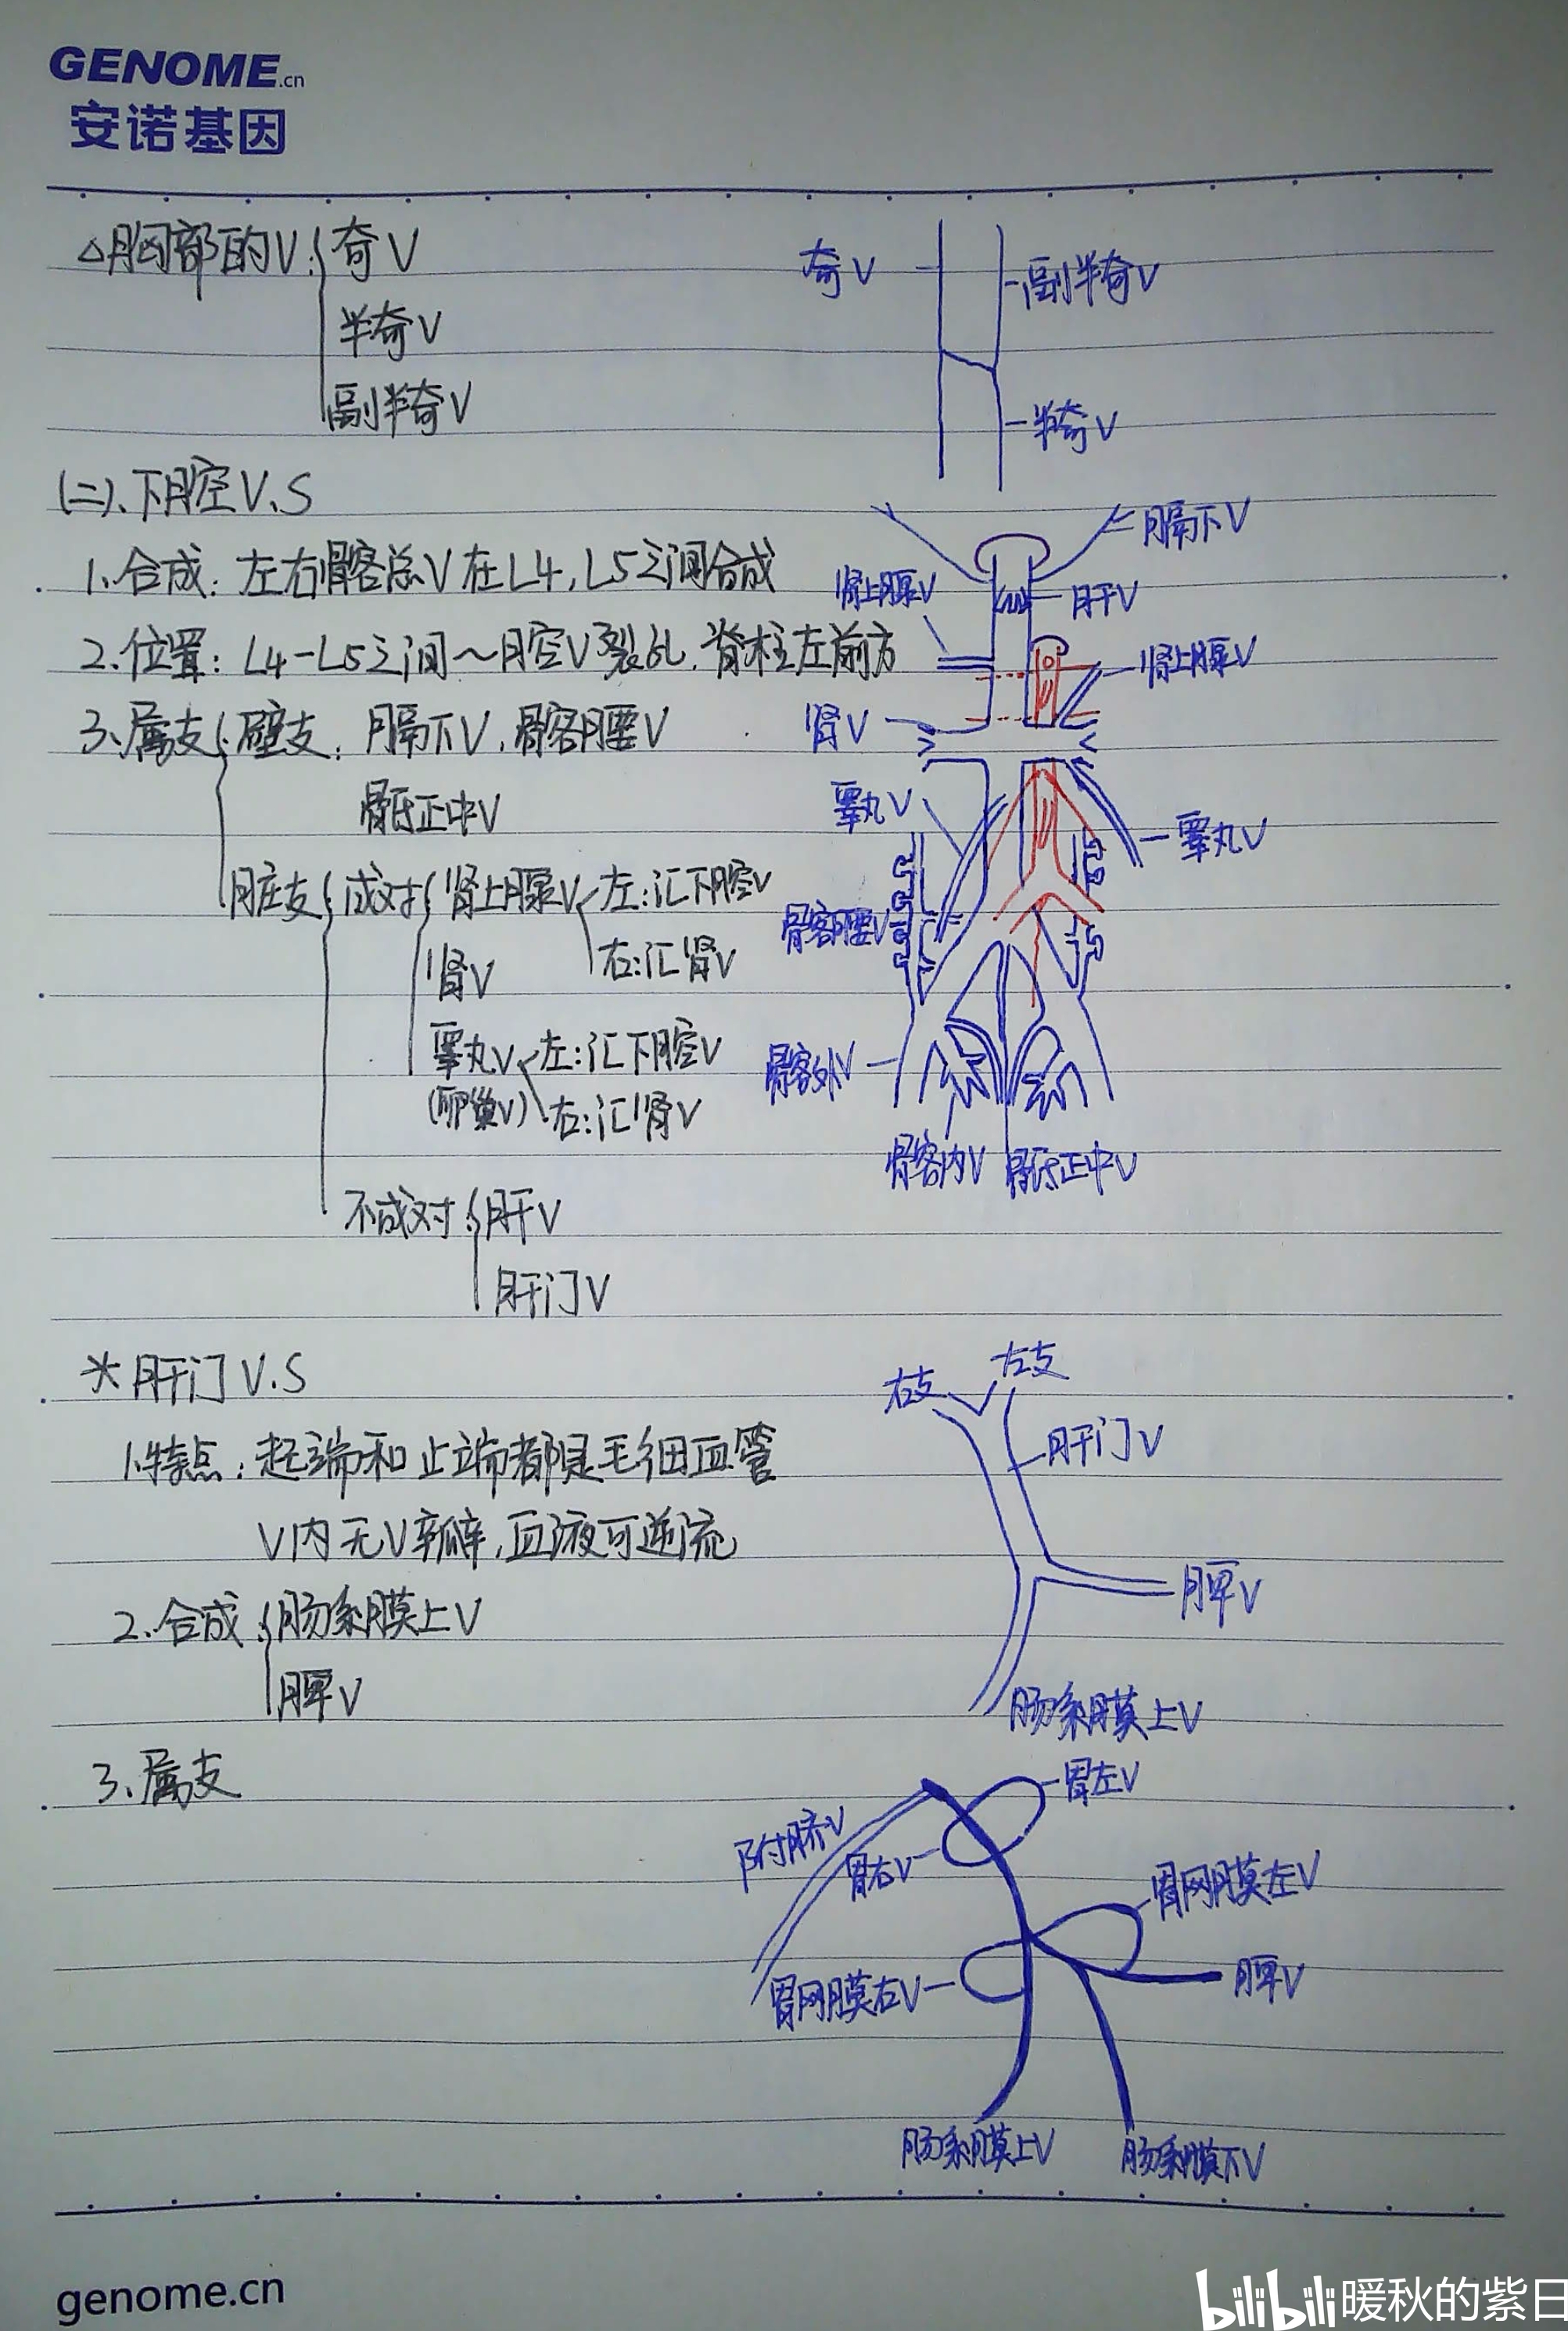 GENOME.cn
安诺基因
△胸部的V 奇V
半奇V
副半奇V
奇V
副半奇V
半奇V
(二).下腔V.S
1.合成:左右髂总V在L4,L5之间合成
2.位置:L4-L5之间~腔V裂孔.脊柱左前方
3.属支 壁支:膈下V,髂腰V
骶正中V
脏支 成对 肾上腺V 左:汇下腔V
右:汇肾V
肾V
睾丸V 左:汇下腔V
(卵巢V) 右:汇肾V
不成对 肝V
肝门V
膈下V
肾上腺V
肝V
肾上腺V
肾V
睾丸V
睾丸V
髂腰V
髂外V
髂内V
骶正中V
*肝门V.S
1.特点:起端和止端都是毛细血管
V内无V瓣,血液可逆流
2.合成 肠系膜上V
脾V
3.属支
右支
左支
肝门V
脾V
肠系膜上V
胃左V
附脐V
胃右V
胃网膜左V
胃网膜右V
脾V
肠系膜上V
肠系膜下V
genome.cn
bilibili 暖秋的紫日